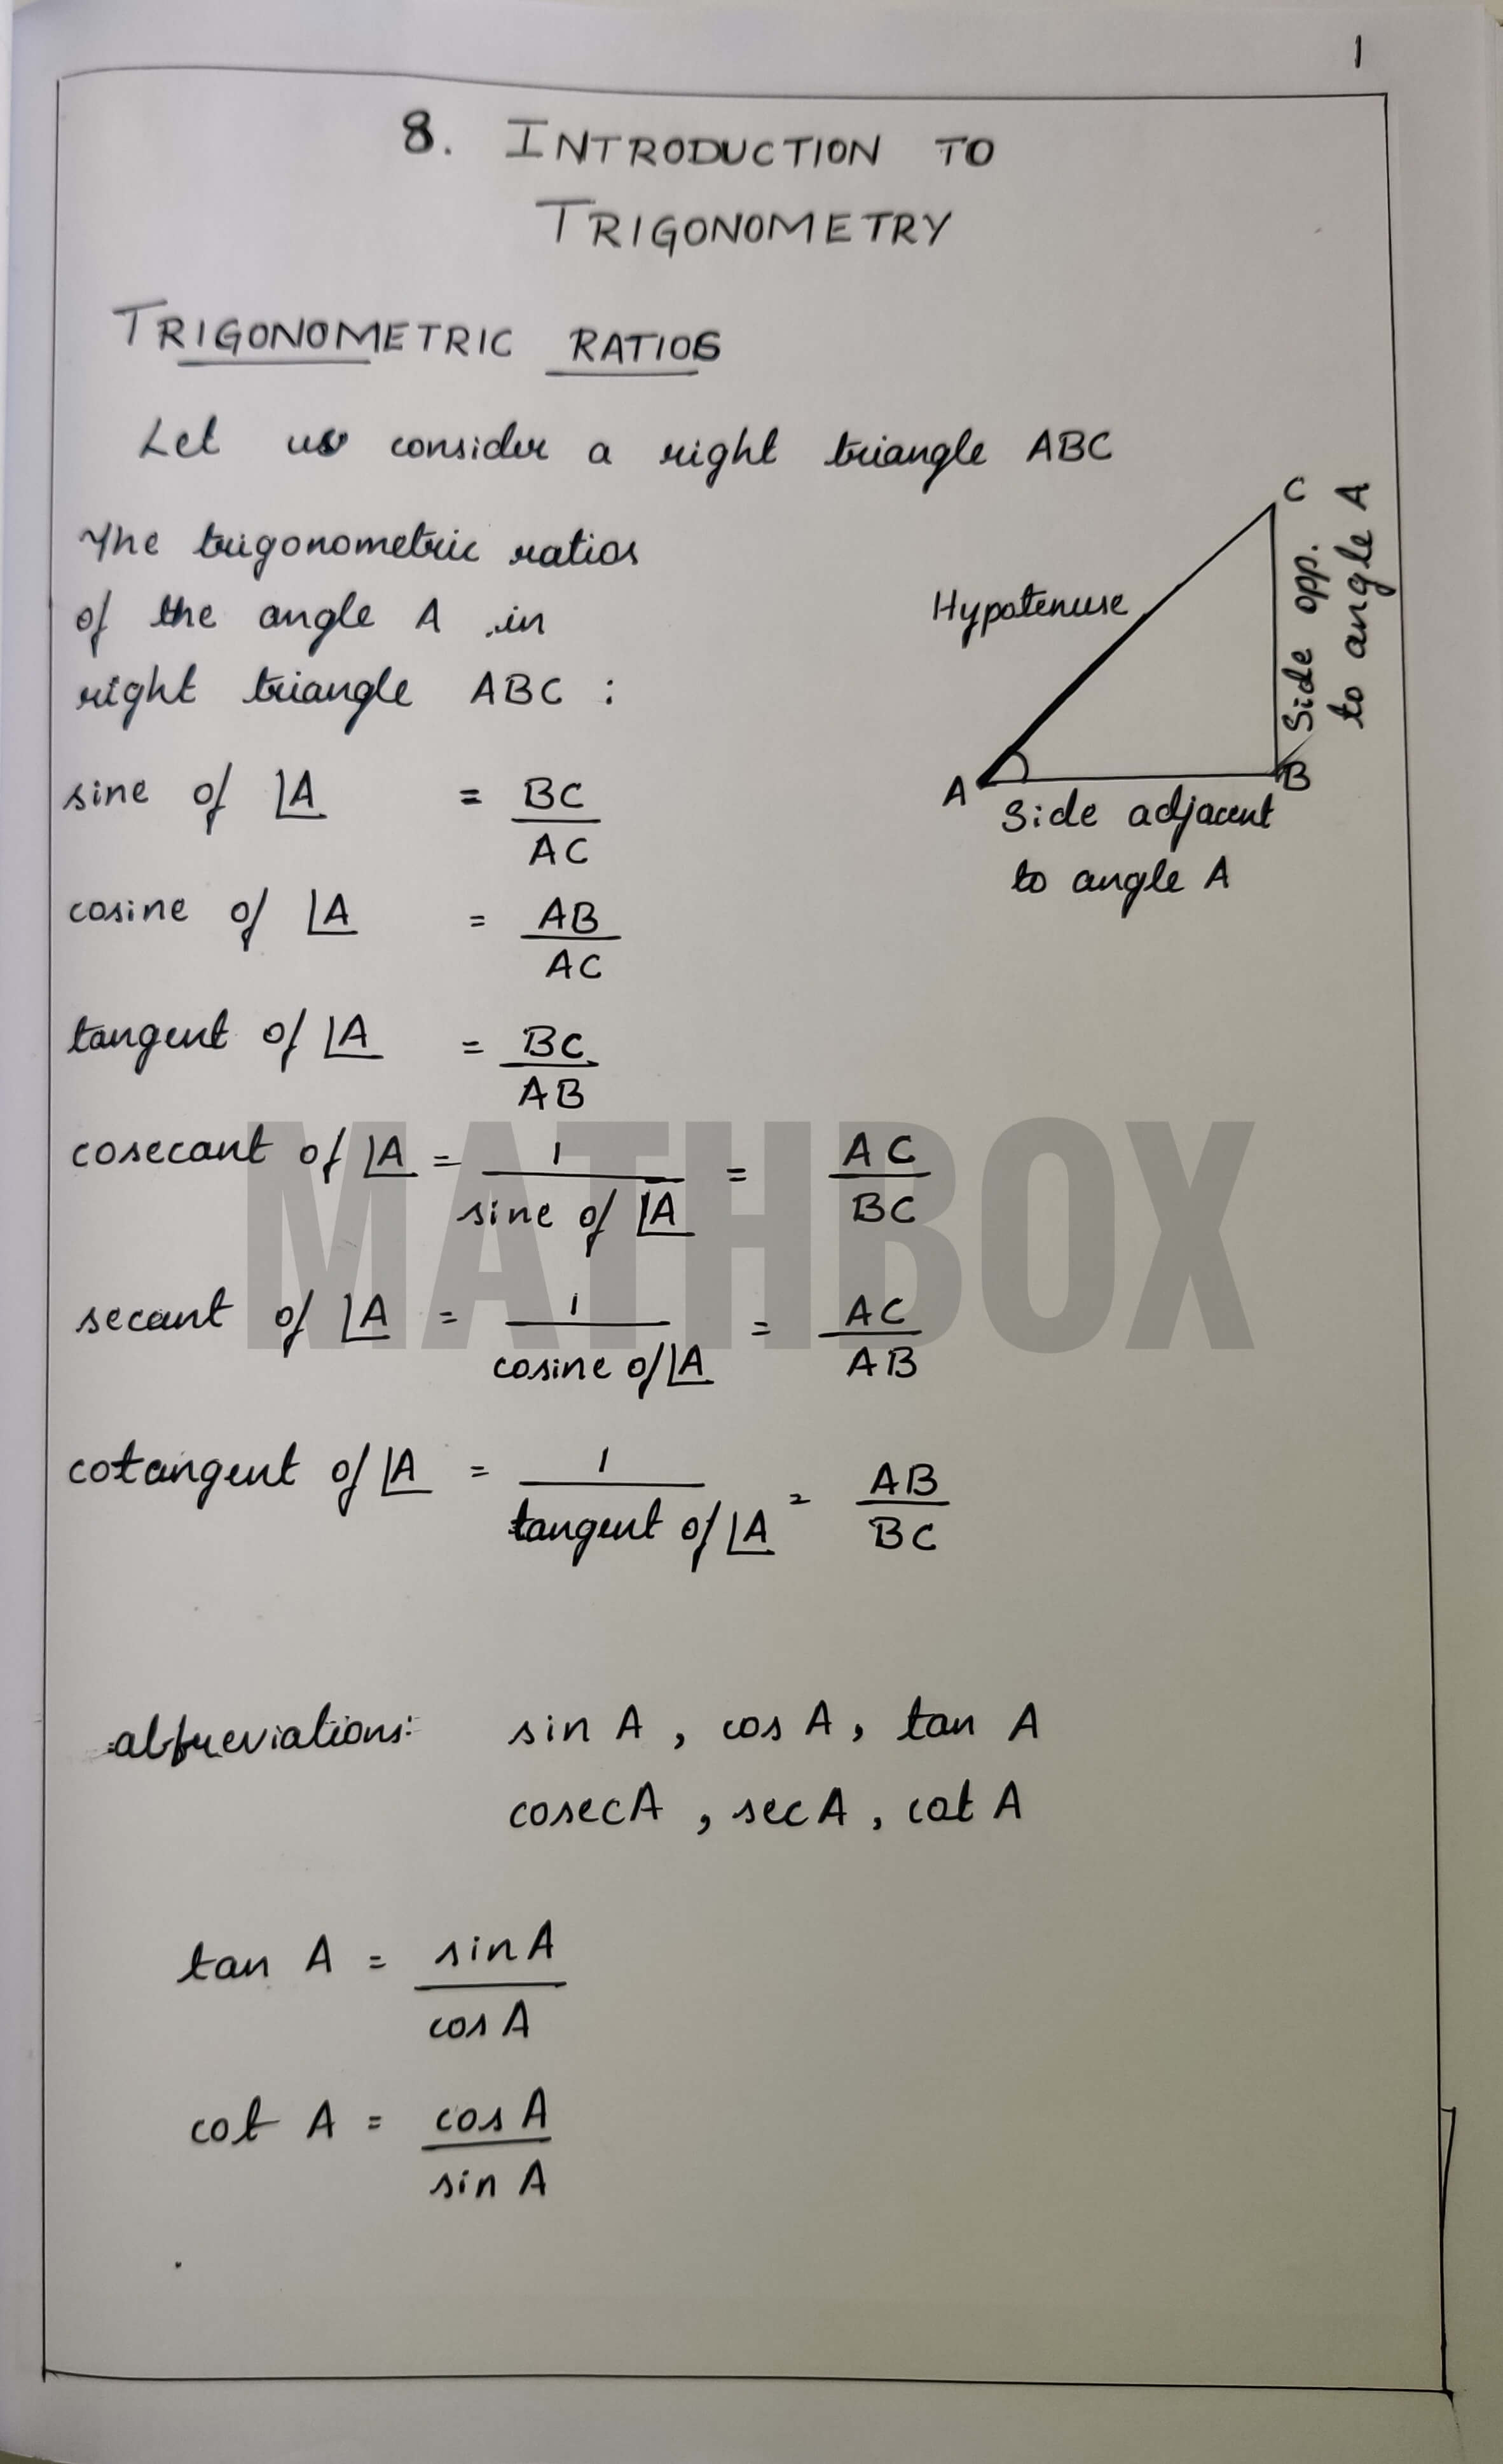 1
8. INTRODUCTION TO
TRIGONOMETRY
TRIGONOMETRIC RATIOS
Let us consider a right triangle ABC
The trigonometric ratios
of the angle A in
right triangle ABC :
C
Hypotenuse
Side opp.
to angle A
A
B
Side adjacent
to angle A
sine of ∠A = BC/AC
cosine of ∠A = AB/AC
tangent of ∠A = BC/AB
cosecant of ∠A = 1/sine of ∠A = AC/BC
secant of ∠A = 1/cosine of ∠A = AC/AB
cotangent of ∠A = 1/tangent of ∠A = AB/BC
MATHBOX
abbreviations: sin A , cos A , tan A
cosec A , sec A , cot A
tan A = sin A/cos A
cot A = cos A/sin A